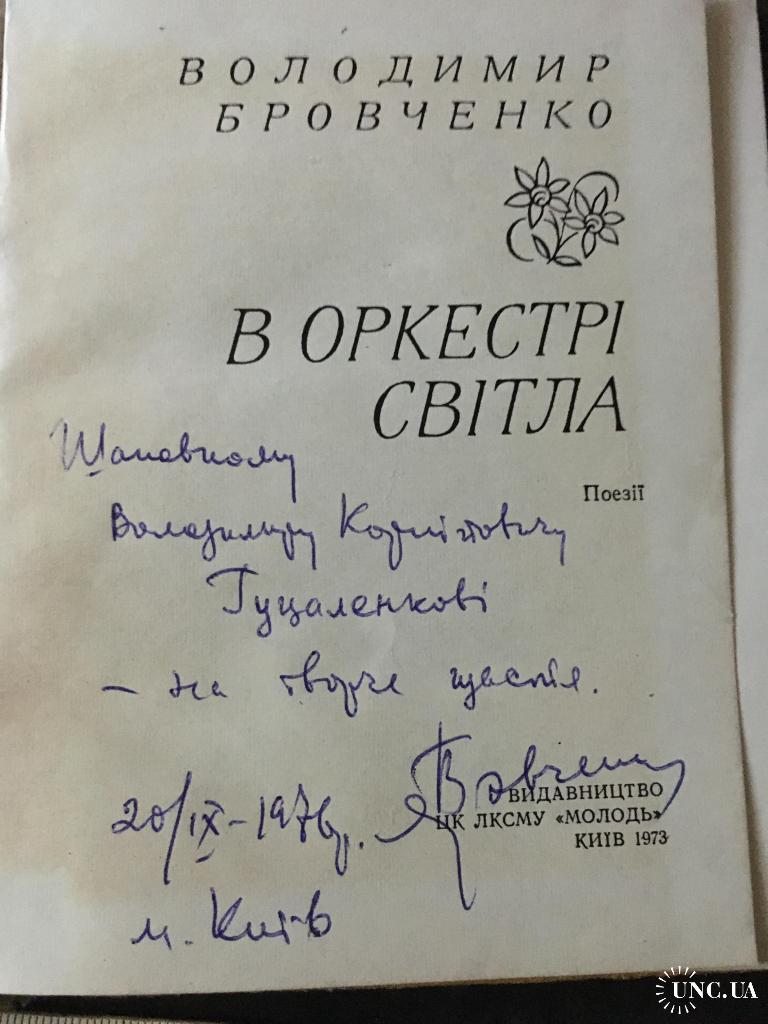 ВОЛОДИМИР
БРОВЧЕНКО
В ОРКЕСТРІ
СВІТЛА
Поезії
Шановному
Володимиру
Гуцаленкові
– на творче щастя.
20/IX – 1976р.
м. Київ
ВИДАВНИЦТВО
ЦК ЛКСМУ «МОЛОДЬ»
КИЇВ 1973
UNC.UA